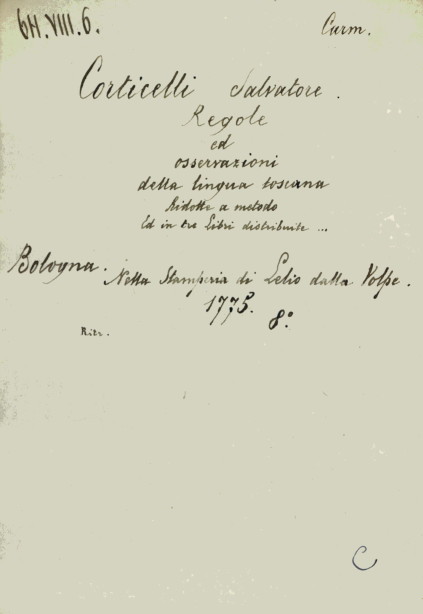 6H.VIII.6. Carm.
Corticelli Salvatore.
Regole
ed
osservazioni
della lingua toscana
Ridotte a metodo
Ed in tre Libri distribuite ...
Bologna. Nella Stamperia di Lelio dalla Volpe.
1775. 8°
Ritr.
C